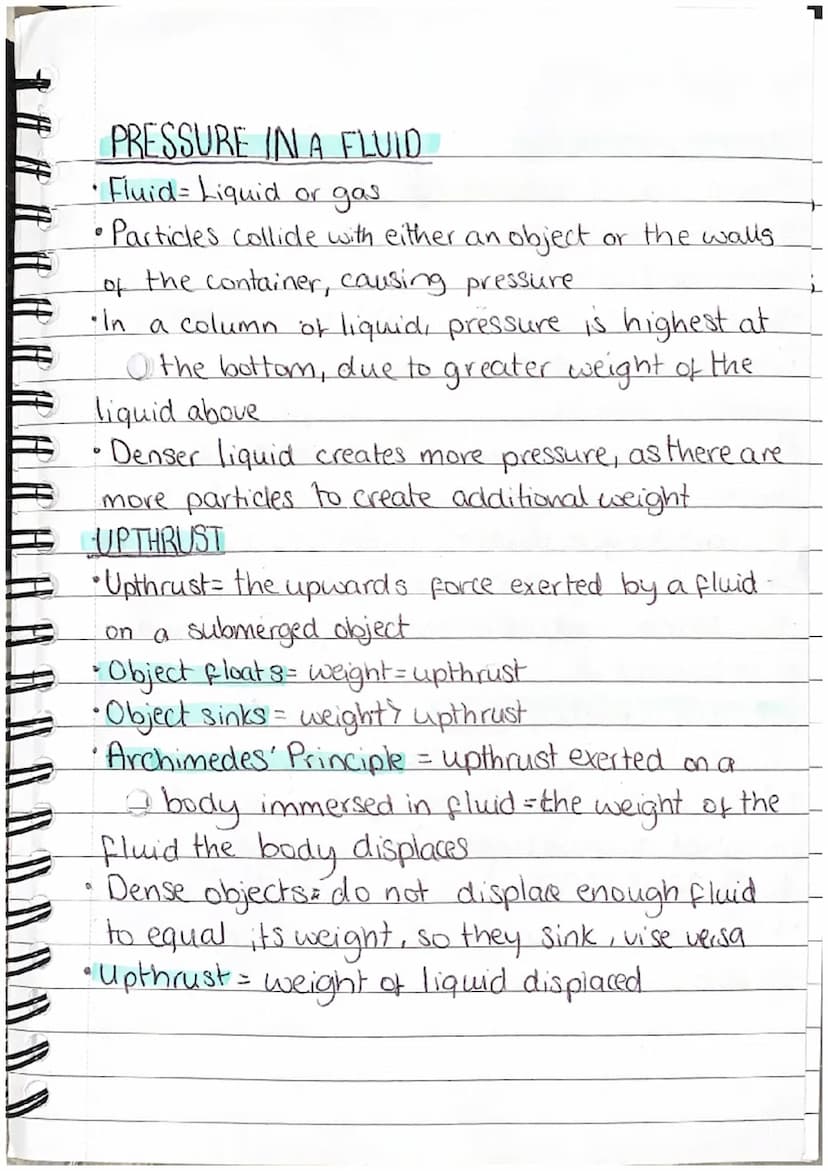 PRESSURE IN A FLUID
• Fluid = Liquid or gas
• Particles collide with either an object or the walls
of the container, causing pressure
• In a column of liquid, pressure is highest at
the bottom, due to greater weight of the
liquid above
• Denser liquid creates more pressure, as there are
more particles to create additional weight
UPTHRUST
• Upthrust = the upwards force exerted by a fluid
on a submerged object
• Object floats = weight = upthrust
• Object sinks = weight > upthrust
• Archimedes' Principle = upthrust exerted on a
body immersed in fluid = the weight of the
fluid the body displaces
• Dense objects = do not displace enough fluid
to equal its weight, so they sink, vise versa
• Upthrust = weight of liquid displaced